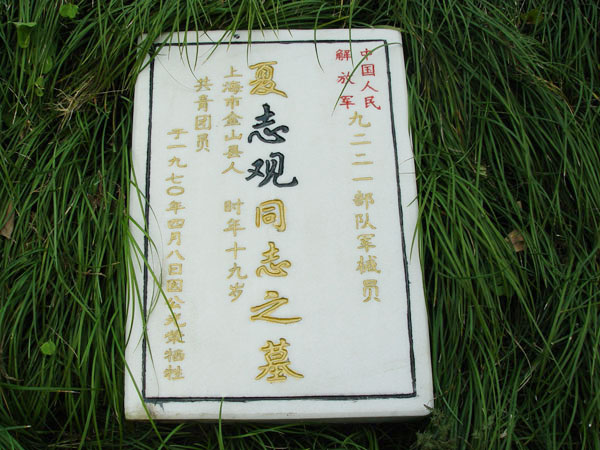 中国人民
解放军
九二二一部队军械员
夏志观同志之墓
上海市金山县人 时年十九岁
共青团员
于一九七〇年四月八日因公光荣牺牲